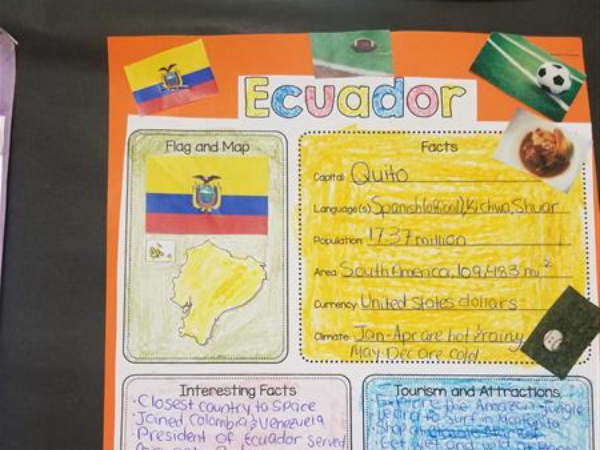 Ecuador
Flag and Map
Facts
Capital Quito
Language(s) Spanish(official), Kichwa, Shuar
Population 17.37 million
Area South America, 109,483 mi²
Currency United states dollars
Climate Jan-Apr are hot & rainy
May-Dec are cold
Interesting Facts
· Closest country to space
· Joined Colombia & Venezuela
· President of Ecuador served
Tourism and Attractions
the Amazon Jungle
Learn to Surf in
· Shop at
· Get wet and wild at